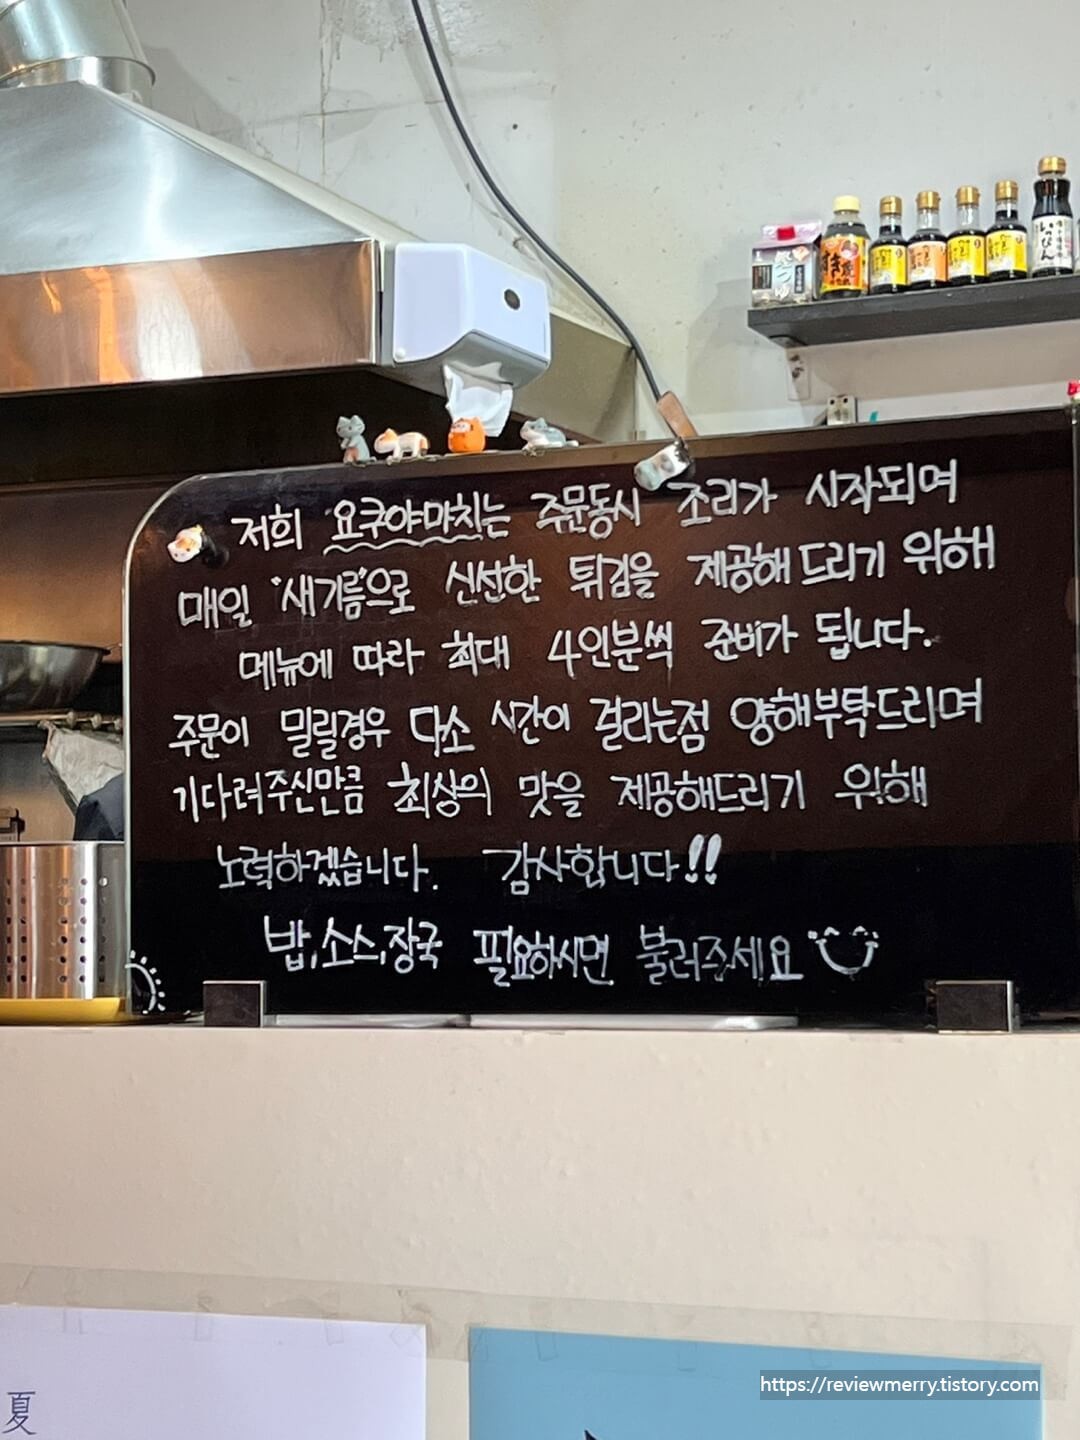 저희 요쿠야마치는 주문동시 조리가 시작되며
매일 "새기름"으로 신선한 튀김을 제공해드리기 위해
메뉴에 따라 최대 4인분씩 준비가 됩니다.
주문이 밀릴경우 다소 시간이 걸리는점 양해부탁드리며
기다려주신만큼 최상의 맛을 제공해드리기 위해
노력하겠습니다. 감사합니다!!
밥,소스,장국 필요하시면 불러주세요
夏
https://reviewmerry.tistory.com